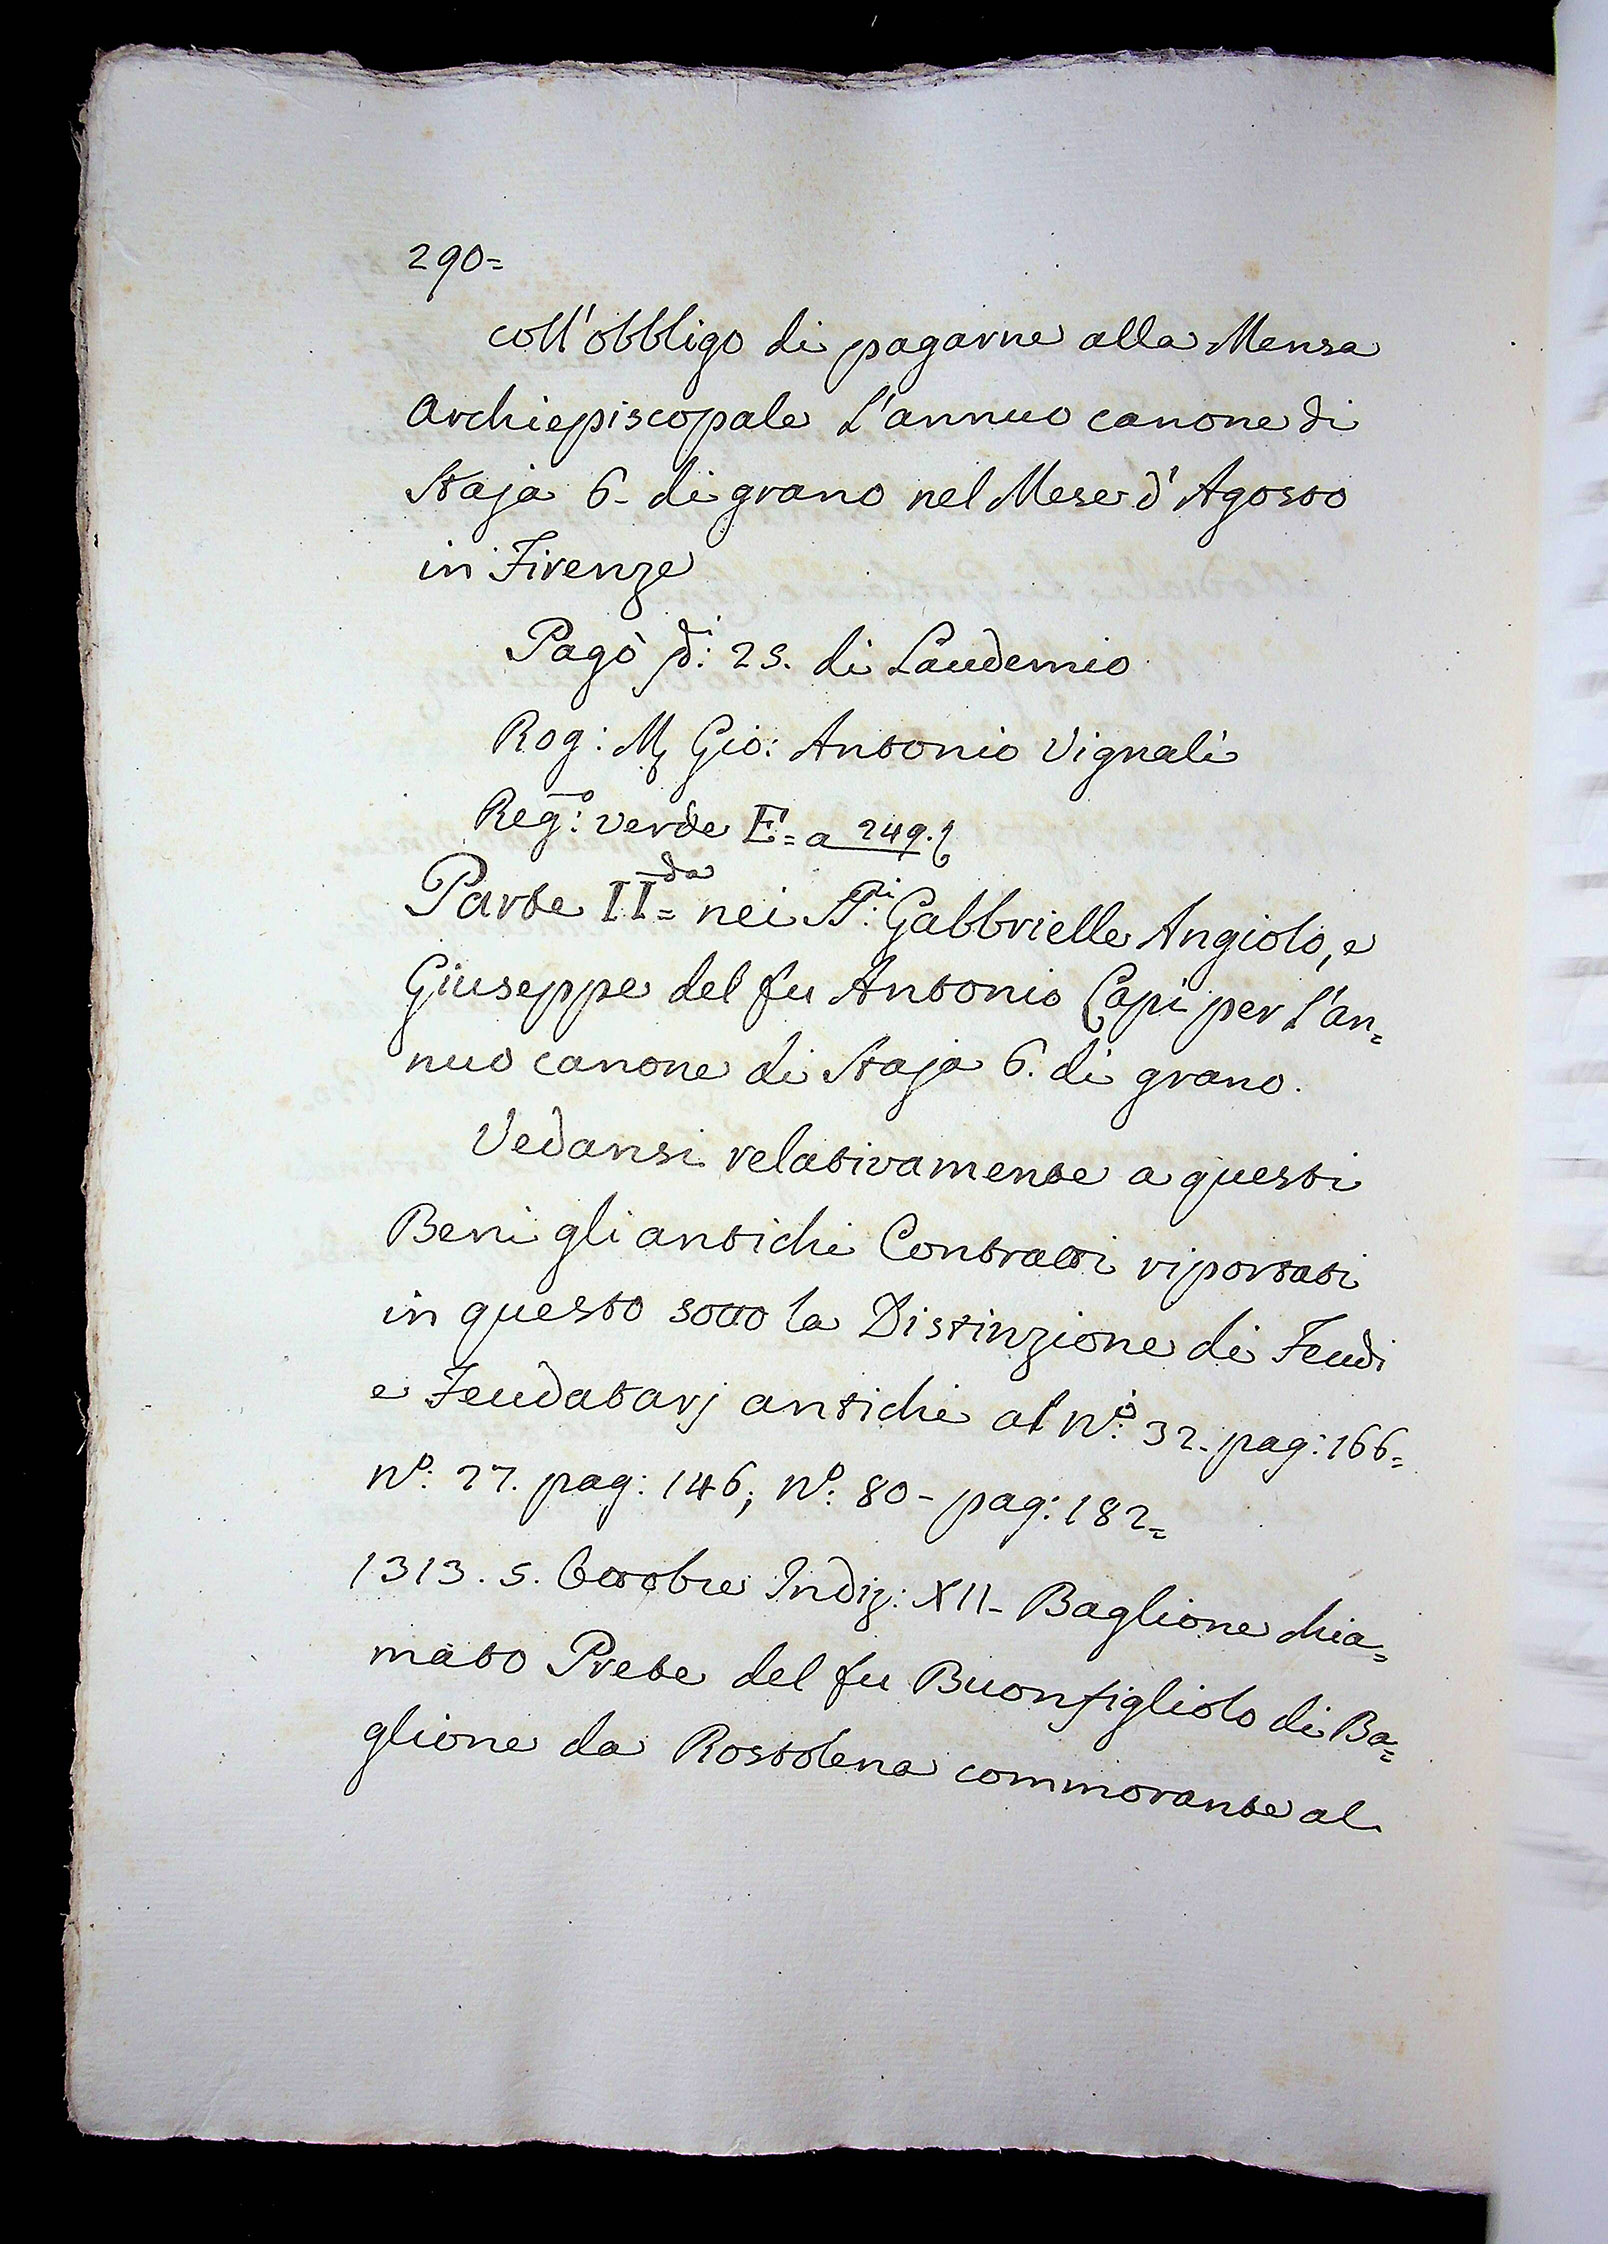 290=
coll'obbligo di pagarne alla Mensa
Archiepiscopale l'annuo canone di
Staja 6- di grano nel Mese d'Agosto
in Firenze
Pagò : 25. di Laudemio
Rog: M Gio: Antonio Vignali
Reg:o verde E= a 249.
Parte IIda= nei Gabbrielle Angiolo, e
Giuseppe del fu Antonio Capi per l'an=
nuo canone di Staja 6. di grano.
Vedansi relativamente a questi
Beni gli antichi Contratti riportati
in questo sotto la Distinzione di Feudi
e Feudatarj antichi al No: 32. pag: 166=
No: 27. pag: 146; No: 80- pag: 182=
1313. 5. Ottobre Indiz: XII- Baglione chia=
mato Prete del fu Buonfigliolo di Ba=
glione da Rostolena commorante al